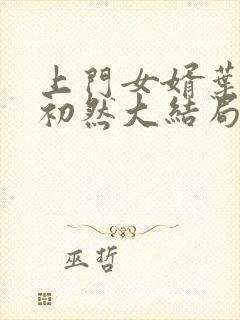 上門女婿葉
初然大結局
巫哲